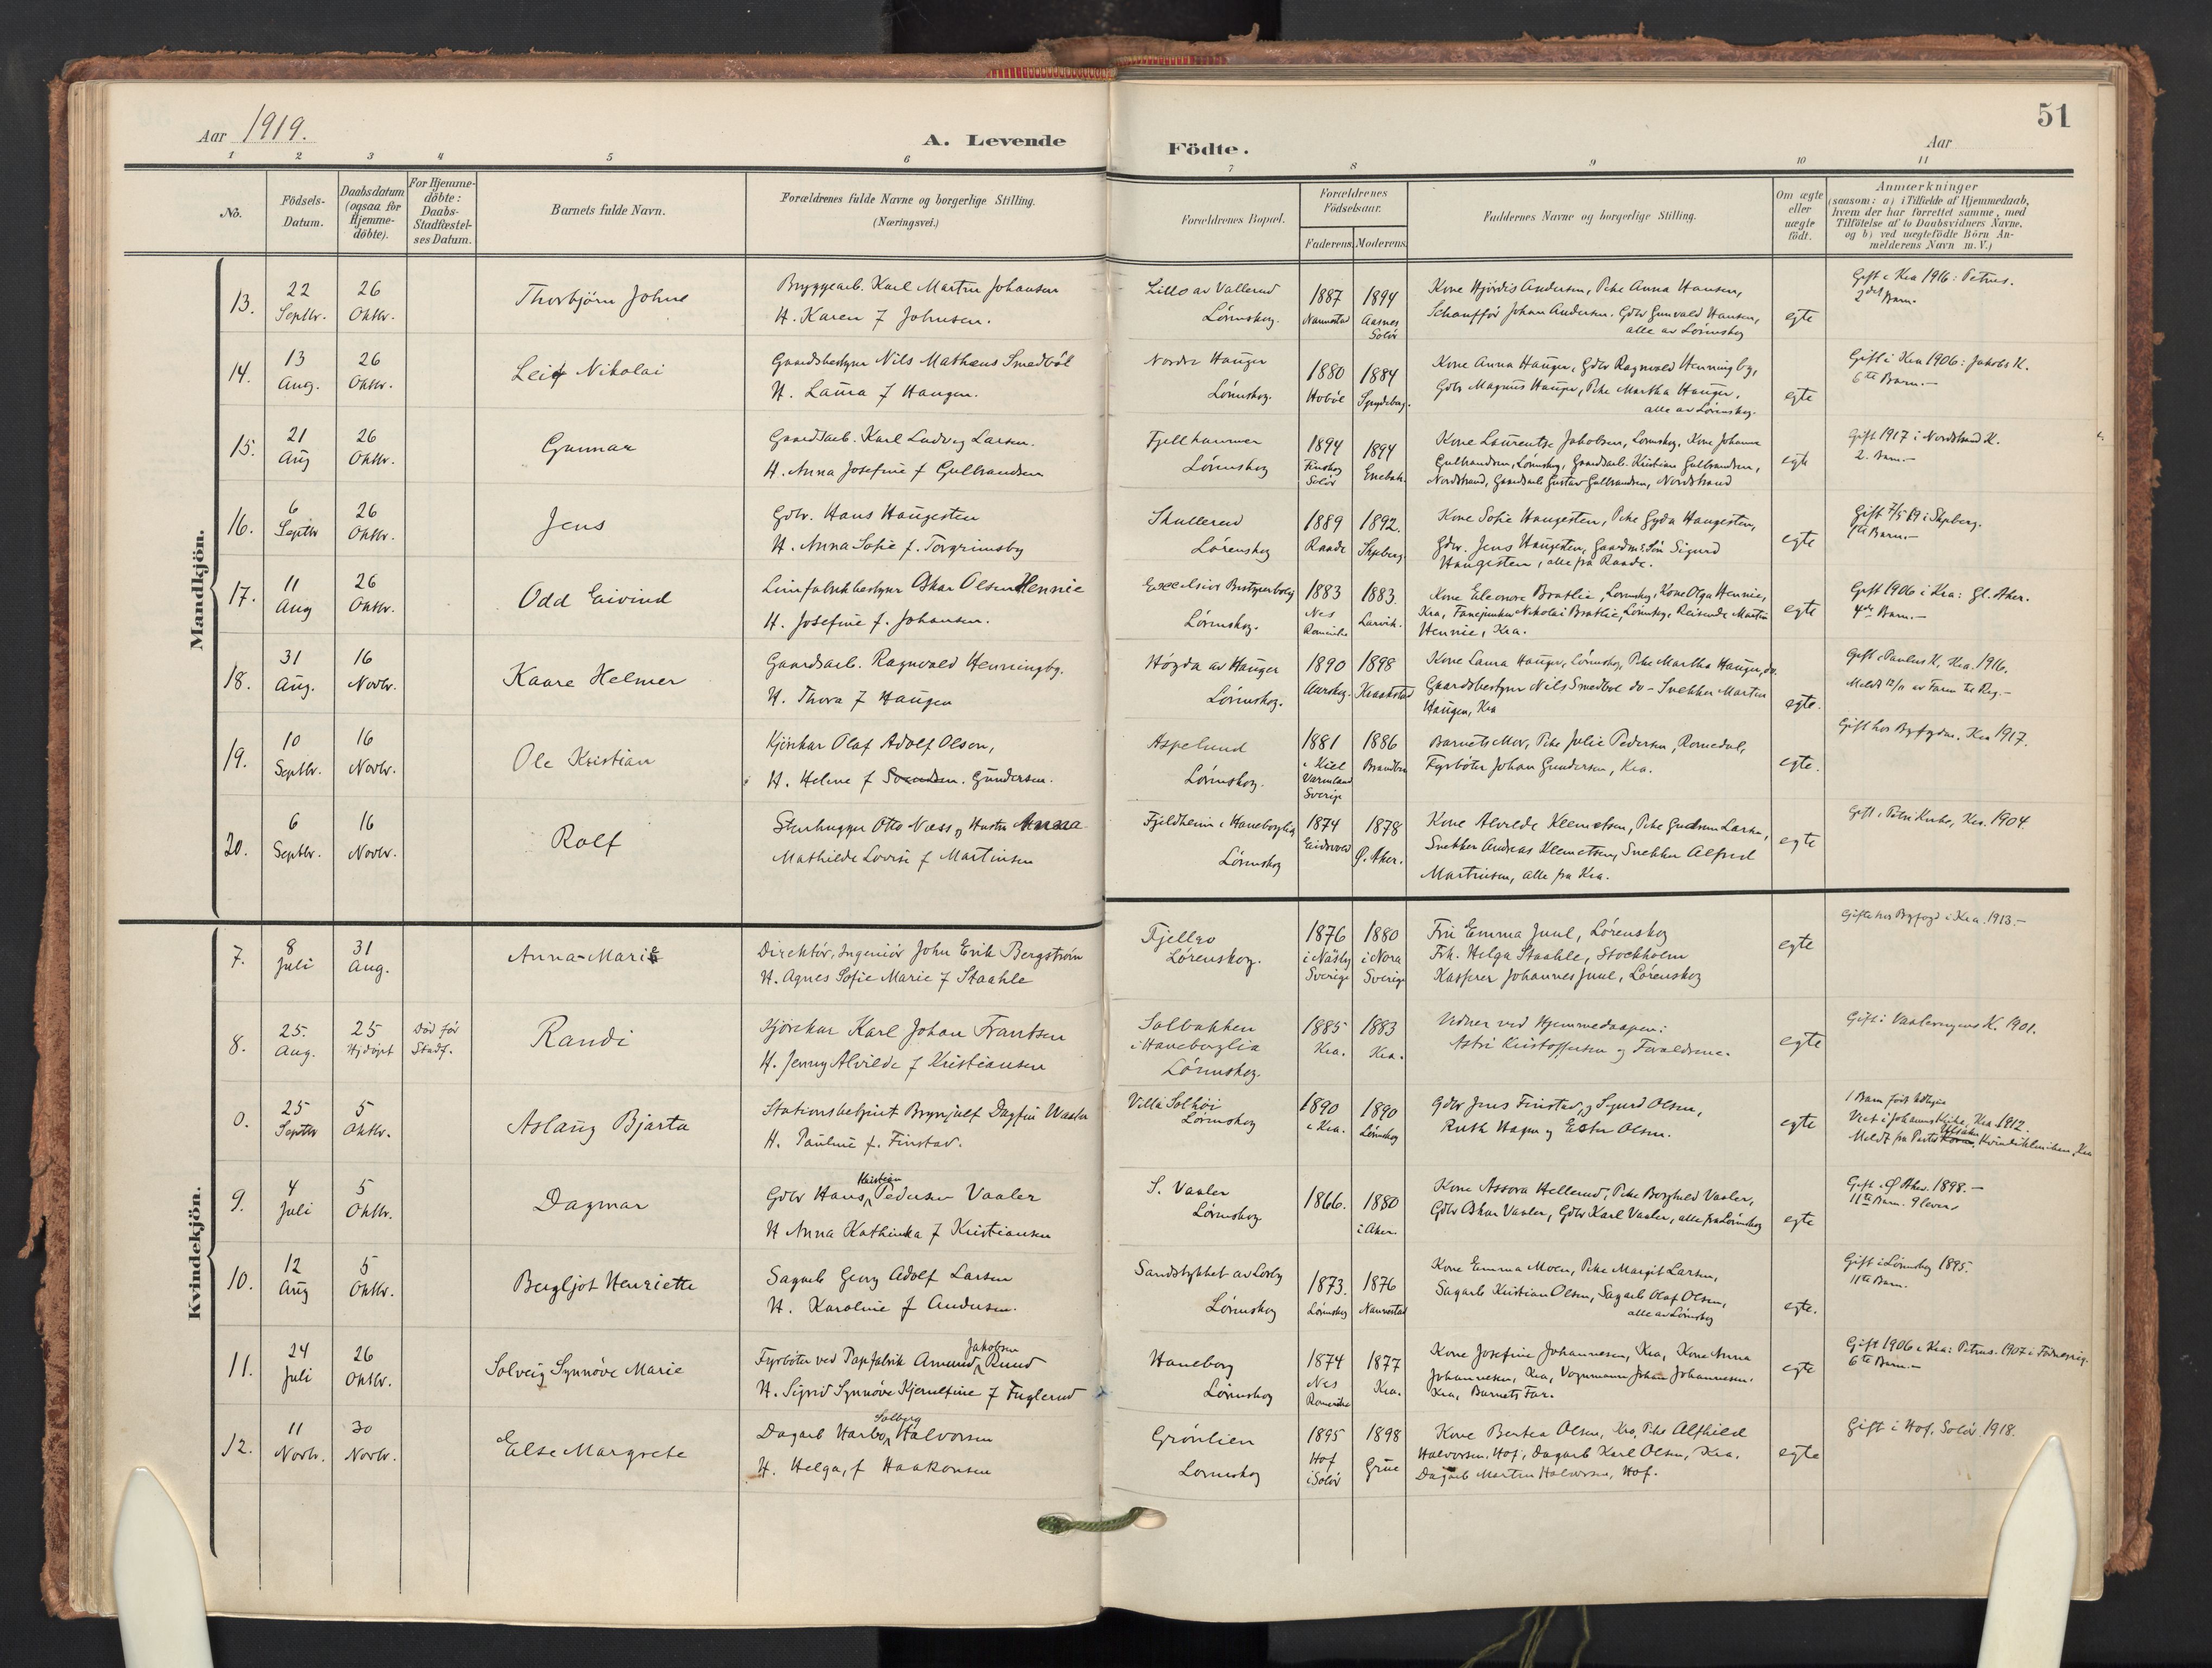 51
Aar 1919.
A. Levende Födte.
Aar
1 2 3 4 5 6 7 8 9 10 11
No.
Födsels-
Datum.
Daabsdatum
(ogsaa for
Hjemme-
döbte).
For Hjemme-
döbte:
Daabs-
Stadfæstel-
ses Datum.
Barnets fulde Navn.
Forældrenes fulde Navne og borgerlige Stilling.
(Næringsvei.)
Forældrenes Bopæl.
Forældrenes
Födselsaar.
Faderens. Moderens.
Faddernes Navne og borgerlige Stilling.
Om ægte
eller
uægte
födt.
Anmærkninger
(saasom: a) i Tilfælde af Hjemmedaab,
hvem der har forrettet samme, med
Tilföielse af to Daabsvidners Navne,
og b) ved uægtefödte Börn An-
melderens Navn m. V.)
Mandkjön.
13.
22
Septbr.
26
Oktbr.
Thorbjörn Johne
Bryggearb. Karl Martin Johansen
H. Karen f Johnsen.
Lillo av Vallerud
Lörenskog.
1887
Nannestad
1894
Aasnes
Solör
Kone Hjördis Andersen, Pike Anna Hansen,
Schaufför Johan Andersen. Gdbr Gunvald Hansen,
alle av Lörenskog
egte
Gift i Kra 1916: Petrus.
2det Barn.
14.
13
Aug.
26
Oktbr.
Leif Nikolai
Gaardsbestyrer Nils Mathæus Smedböl
H. Laura f Haugen.
Nordre Hauger
Lörenskog.
1880
Hoböl
1884
Spydeberg.
Kone Anna Hauger, Gdbr Ragnvald Henningby,
Gdbr Magnus Hauger, Pike Martha Hauger,
alle av Lörenskog.
egte
Gift i Kra 1906: Jakobs K.
6te Barn.-
15.
21
Aug
26
Oktbr.
Gunnar
Gaardsarb. Karl Ludvig Larsen.
H. Anna Josefine f Gulbrandsen
Fjellhammer
Lörenskog
1894
Finskog
Solör
1894
Enebak.
Kone Laurentse Jakobsen, Lörenskog, Kone Johanne
Gulbrandsen, Lörenskog, Gaardsarb. Kristian Gulbrandsen,
Nordstrand, Gaardsarb Gustav Gulbrandsen, Nordstrand
egte
Gift 1917 i Nordstrand K.
2. Barn.-
16.
6
Septbr
26
Oktbr.
Jens
Gdbr. Hans Haugesten
H. Anna Sofie f. Torgrimsby
Skullerud
Lörenskog
1889
Raade
1892.
Skjeberg
Kone Sofie Haugesten, Pike Gyda Haugesten,
Gdbr. Jens Haugesten, Gaardm. Sön Sigurd
Haugesten, alle fra Raade.
egte
Gift 7/5 19 i Skjeberg.
1ste Barn.-
17.
11
Aug
26
Oktbr.
Odd Eivind
Limfabrikbestyrer Oskar Olsen Hennie
H. Josefine f. Johansen.
Excelsior Bestyrerbolig
Lörenskog.
1883
Nes
Romerike
1883.
Larvik.
Kone Eleonore Bratlie, Lörenskog, Kone Olga Hennie,
Kra, Fanejunker Nikolai Bratlie, Lörenskog, Reisende Martin
Hennie, Kra.
egte
Gift 1906 i Kra: Gl. Aker.
4de Barn.-
18.
31
Aug.
16
Novbr.
Kaare Helmer
Gaardsarb. Ragnvald Henningby.
H. Thora f Haugen
Högda av Hauger
Lörenskog.
1890
Aurskog.
1898
Kraakstad
Kone Laura Hauger, Lörenskog, Pike Martha Hauger, do.
Gaardsbestyrer Nils Smedbol do - Snekker Martin
Haugen, Kra
egte.
Gift i Paulus K, Kra. 1916.
Meldt 12/11 av Faren til Reg.-
19.
10
Septbr.
16
Novbr.
Ole Kristian
Kjörekar Olaf Adolf Olsen,
H. Helene f Svendsen. Gundersen.
Aspelund
Lörenskog.
1881
i Kiel
Värmland
Sverige
1886
Brandbu
Barnets Mor, Pike Julie Pedersen, Romedal,
Fyrböter Johan Gundersen, Kra.
egte.
Gift hos Byfogden. Kra 1917.
20.
6
Septbr.
16
Novbr.
Rolf
Stenhugger Otto Næss og Hustru Anna
Mathilde Lovise f Martinsen
Fjeldheim i Haneborglia
Lörenskog
1874
Eidsvold
1878
Ø. Aker.
Kone Alvilde Klemetsen, Pike Gudrun Larsen,
Snekker Andreas Klemetsen, Snekker Alfred
Martinsen, alle fra Kra.
egte
Gift i Petri Kirke, Kra. 1904.
Kvindekjön.
7.
8
Juli
31
Aug.
Anna-Marie
Direktör, Ingeniör John Erik Bergström
H. Agnes Sofie Marie f Staahle
Fjellro
Lörenskog.
1876
i Näsby
Sverige
1880
i Nora
Sverige
Fru Emma Juul, Lörenskog
Frk. Helga Staahle, Stockholm
Kasserer Johannes Juul, Lörenskog
egte
Gifte hos Byfogd i Kra. 1913-
8.
25.
Aug.
25
Hjdöpt
Död för
Stadf.
Randi
Kjörekar Karl Johan Frantsen
H. Jenny Alvilde f Kristiansen
Solbakken
i Haneborglia
Lörenskog.
1885
Kra.
1883
Kra.
Vidner ved Hjemmedaapen:
Astri Kristoffersen og Forældrene.
egte
Gift i Vaalerengens K. 1901.
0.
25
Septbr
5
Oktbr.
Aslaug Bjarta
Stationsbetjent Brynjulf Dagfin Waaler
H. Pauline f. Finstad.
Villa Solhöi
Lörenskog
1890
i Kra.
1890
Lörenskog
Gdbr Jens Finstad, og Sigurd Olsen,
Ruth Hagen og Ester Olsen.
egte
1 Barn
Viet i Johannes Kirke, Kra. 1912.
Meldt fra Kvindeklinikken, Kra
9.
4
Juli
5
Oktbr.
Dagmar
Kristian
Gdbr Hans Pedersen Vaaler
H Anna Kathinka f Kristiansen
S. Vaaler
Lörenskog
1866.
1880
i Aker.
Kone Assora Hellerud, Pike Borghild Vaaler,
Gdbr Oskar Vaaler, Gdbr Karl Vaaler, alle fra Lörenskog
egte
Gift i Ø Aker. 1898.-
11te Barn. 9 lever
10.
12
Aug
5
Oktbr.
Bergljot Henriette
Sagarb Georg Adolf Larsen
H. Karoline f Andersen.
Sandstykket av Losby
Lörenskog
1873.
Lörenskog
1876
Nannestad
Kone Emma Moen, Pike Margit Larsen,
Sagarb Kristian Olsen, Sagarb Olaf Olsen,
alle av Lörenskog
egte.
Gift i Lörenskog 1895.
11te Barn.
11.
24
Juli
26
Oktbr.
Solveig Synnöve Marie
Jakobsen
Fyrböter ved Papfabrik Amund Ruud
H. Sigrid Synnöve Kjerulfine f Fuglerud
Haneborg
Lörenskog
1874
Nes
Romerike
1877
Kra.
Kone Josefine Johannesen, Kra, Kone Anna
Johannesen, Kra, Vognmann Johan Johannesen.
Kra, Barnets Far.
egte
Gift 1906 i Kra: Petrus.
6te Barn.-
12.
11
Novbr.
30
Novbr.
Else Margrete
Solberg
Dagarb Harbo Halvorsen
H. Helga, f Haakonsen
Grönlien
Lörenskog
1895
Hof
i Solör
1898
Grue
Kone Bertea Olsen, Kra, Pike Alfhild
Halvorsen, Hof, Dagarb Karl Olsen, Kra.
Dagarb Martin Halvorsen, Hof.
egte
Gift i Hof, Solör 1918.